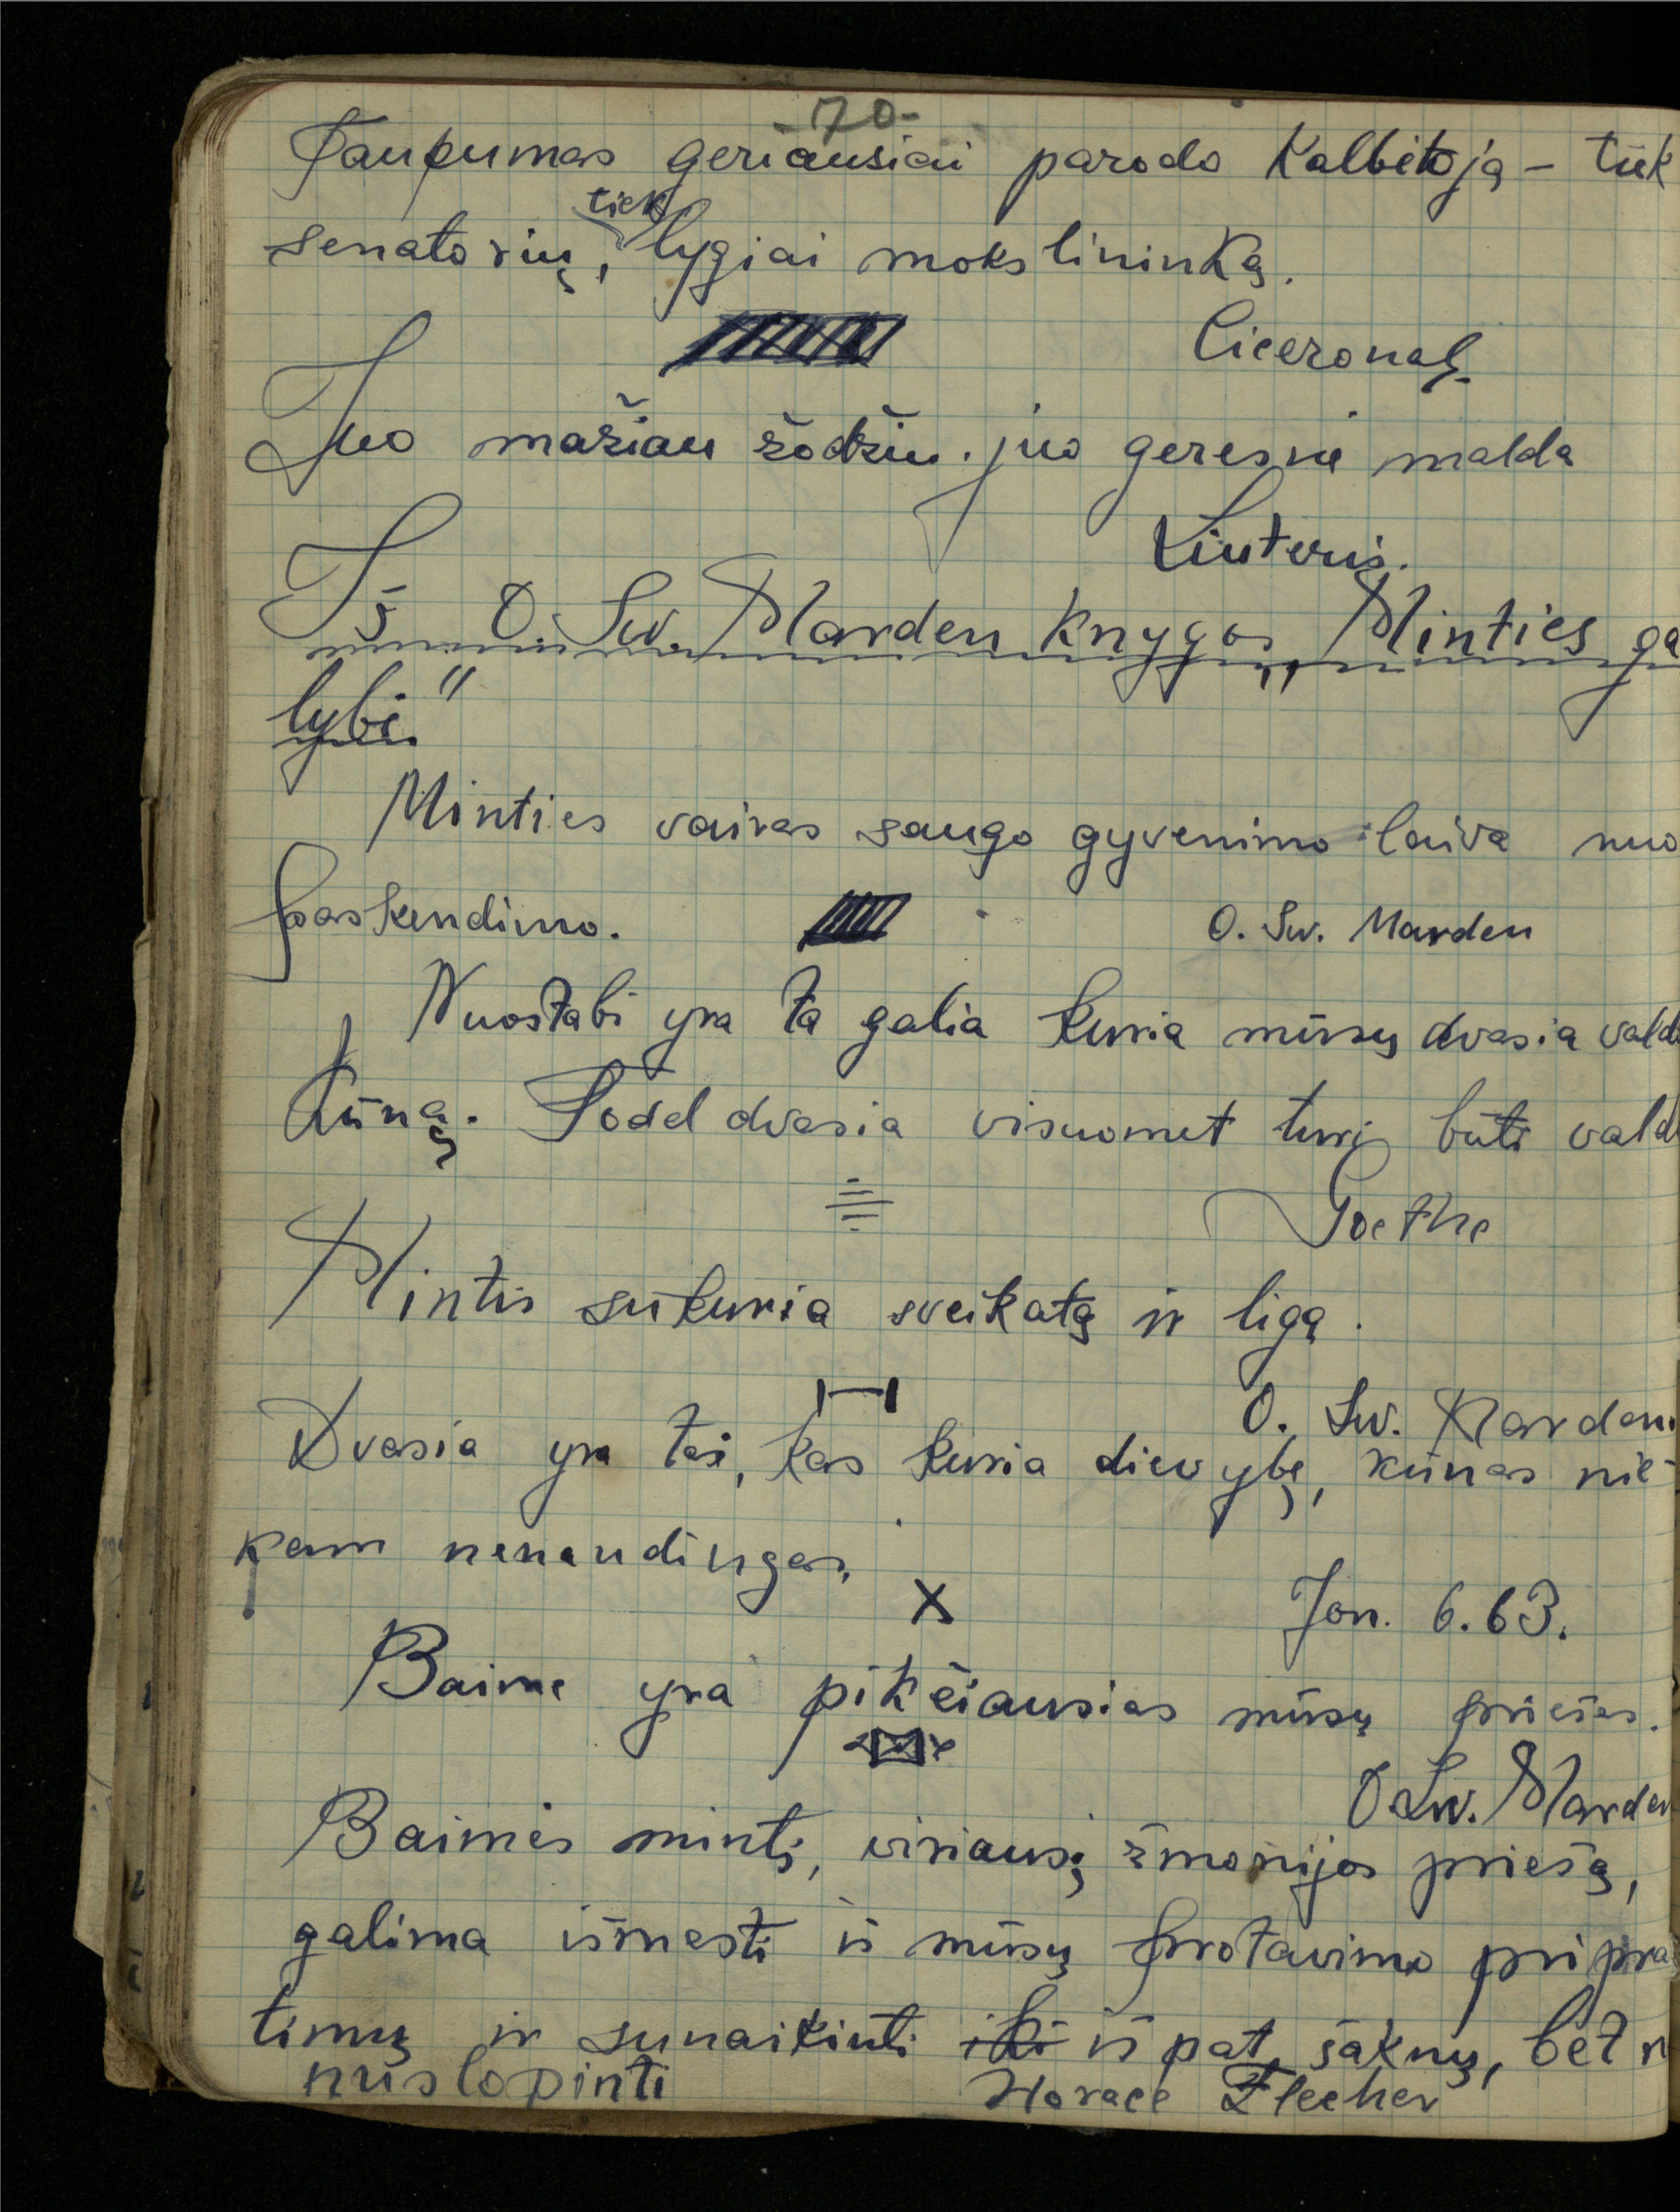 -70-
Taupumas geriausiai parodo kalbėtoją - tiek
tiek
senatorių, lygiai mokslininką.
Ciceronas.
Juo mažiau žodžiu. juo geresnė malda
Liuteris.
Iš O. Sw. Marden knygos „Minties ga
lybė"
Minties vairas saugo gyvenimo laiva nuo
paskendimo.
O. Sw. Marden
Nuostabi yra ta galia kuria mūsų dvasia vald
kūną. Todel dvasia visuomet turi būti vald
Goethe
Mintis sukuria sveikatą ir ligą.
O. Sw. Marden
Dvasia yra tai, kas kuria dievybę, kūnas nie-
kam nenaudingas.
Jon. 6.63.
Baime yra pikčiausias mūsų priešas.
O Sw. Marden
Baimės mintį, viriausį žmonijos priešą,
galima išmesti iš mūsų protavimo pripra
timų ir sunaikinti iki iš pat šaknų, bet n
nuslopinti
Horace Flecher